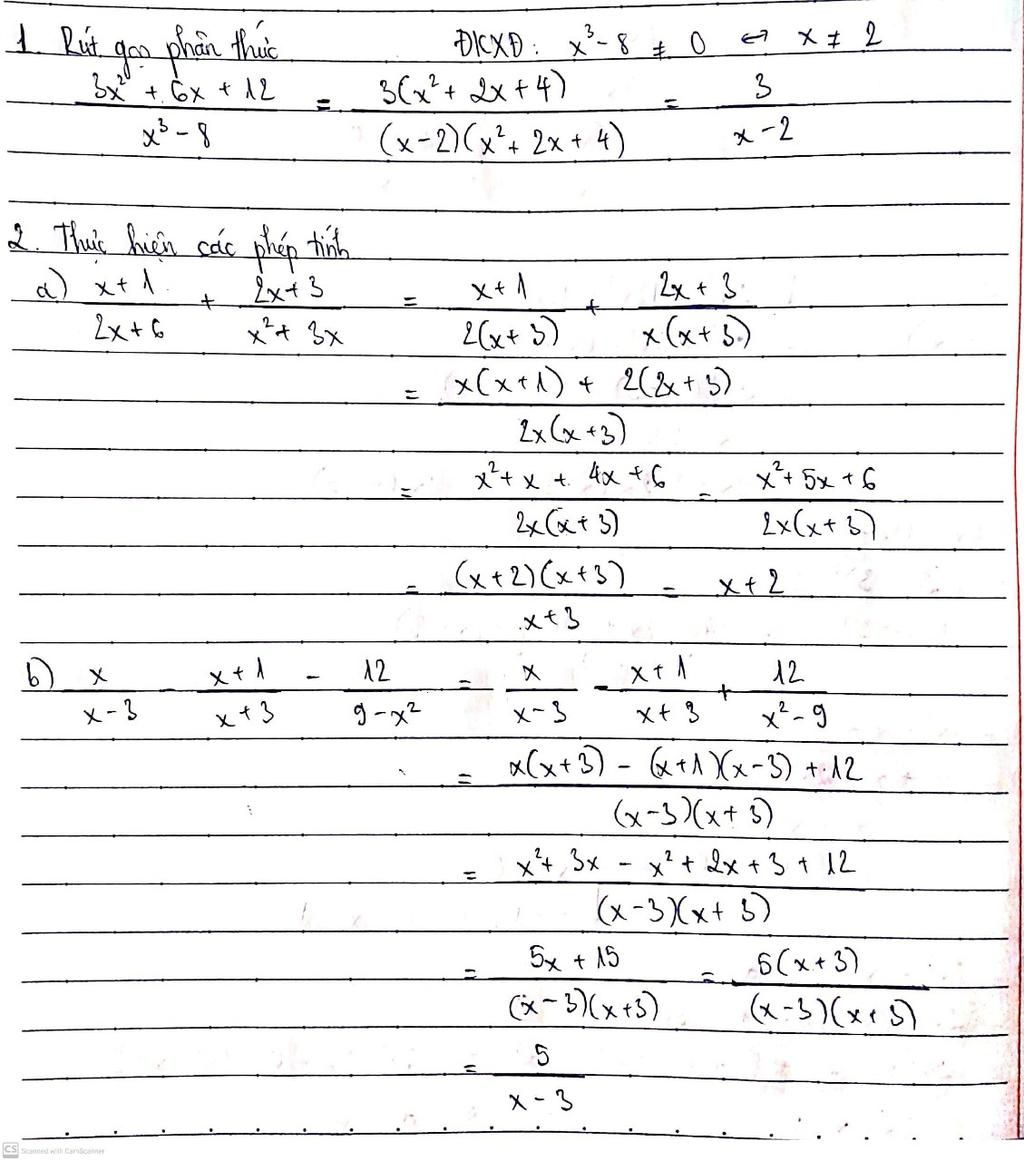 1. Rút gọn phân thức ĐKXĐ: x³ - 8 ≠ 0 ↔ x ≠ 2
(3x² + 6x + 12)/(x³ - 8) = 3(x² + 2x + 4)/((x-2)(x² + 2x + 4)) = 3/(x - 2)
2. Thực hiện các phép tính
a) (x + 1)/(2x + 6) + (2x + 3)/(x² + 3x) = (x + 1)/(2(x + 3)) + (2x + 3)/(x(x + 3))
= (x(x + 1) + 2(2x + 3))/(2x(x + 3))
= (x² + x + 4x + 6)/(2x(x + 3)) = (x² + 5x + 6)/(2x(x + 3))
= ((x + 2)(x + 3))/(x + 3) = x + 2
b) x/(x - 3) - (x + 1)/(x + 3) - 12/(9 - x²) = x/(x - 3) - (x + 1)/(x + 3) + 12/(x² - 9)
= (x(x + 3) - (x + 1)(x - 3) + 12)/((x - 3)(x + 3))
= (x² + 3x - x² + 2x + 3 + 12)/((x - 3)(x + 3))
= (5x + 15)/((x - 3)(x + 3)) = 5(x + 3)/((x - 3)(x + 3))
= 5/(x - 3)
CS Scanned with CamScanner